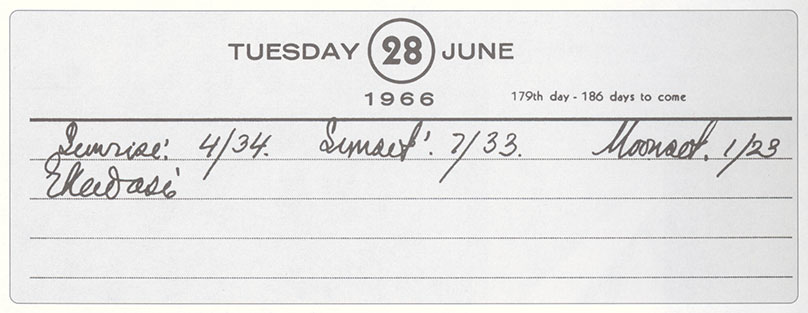 TUESDAY 28 JUNE
1966 179th day - 186 days to come
Sunrise: 4/34. Sunset: 7/33. Moonset. 1/23
Ekadasi